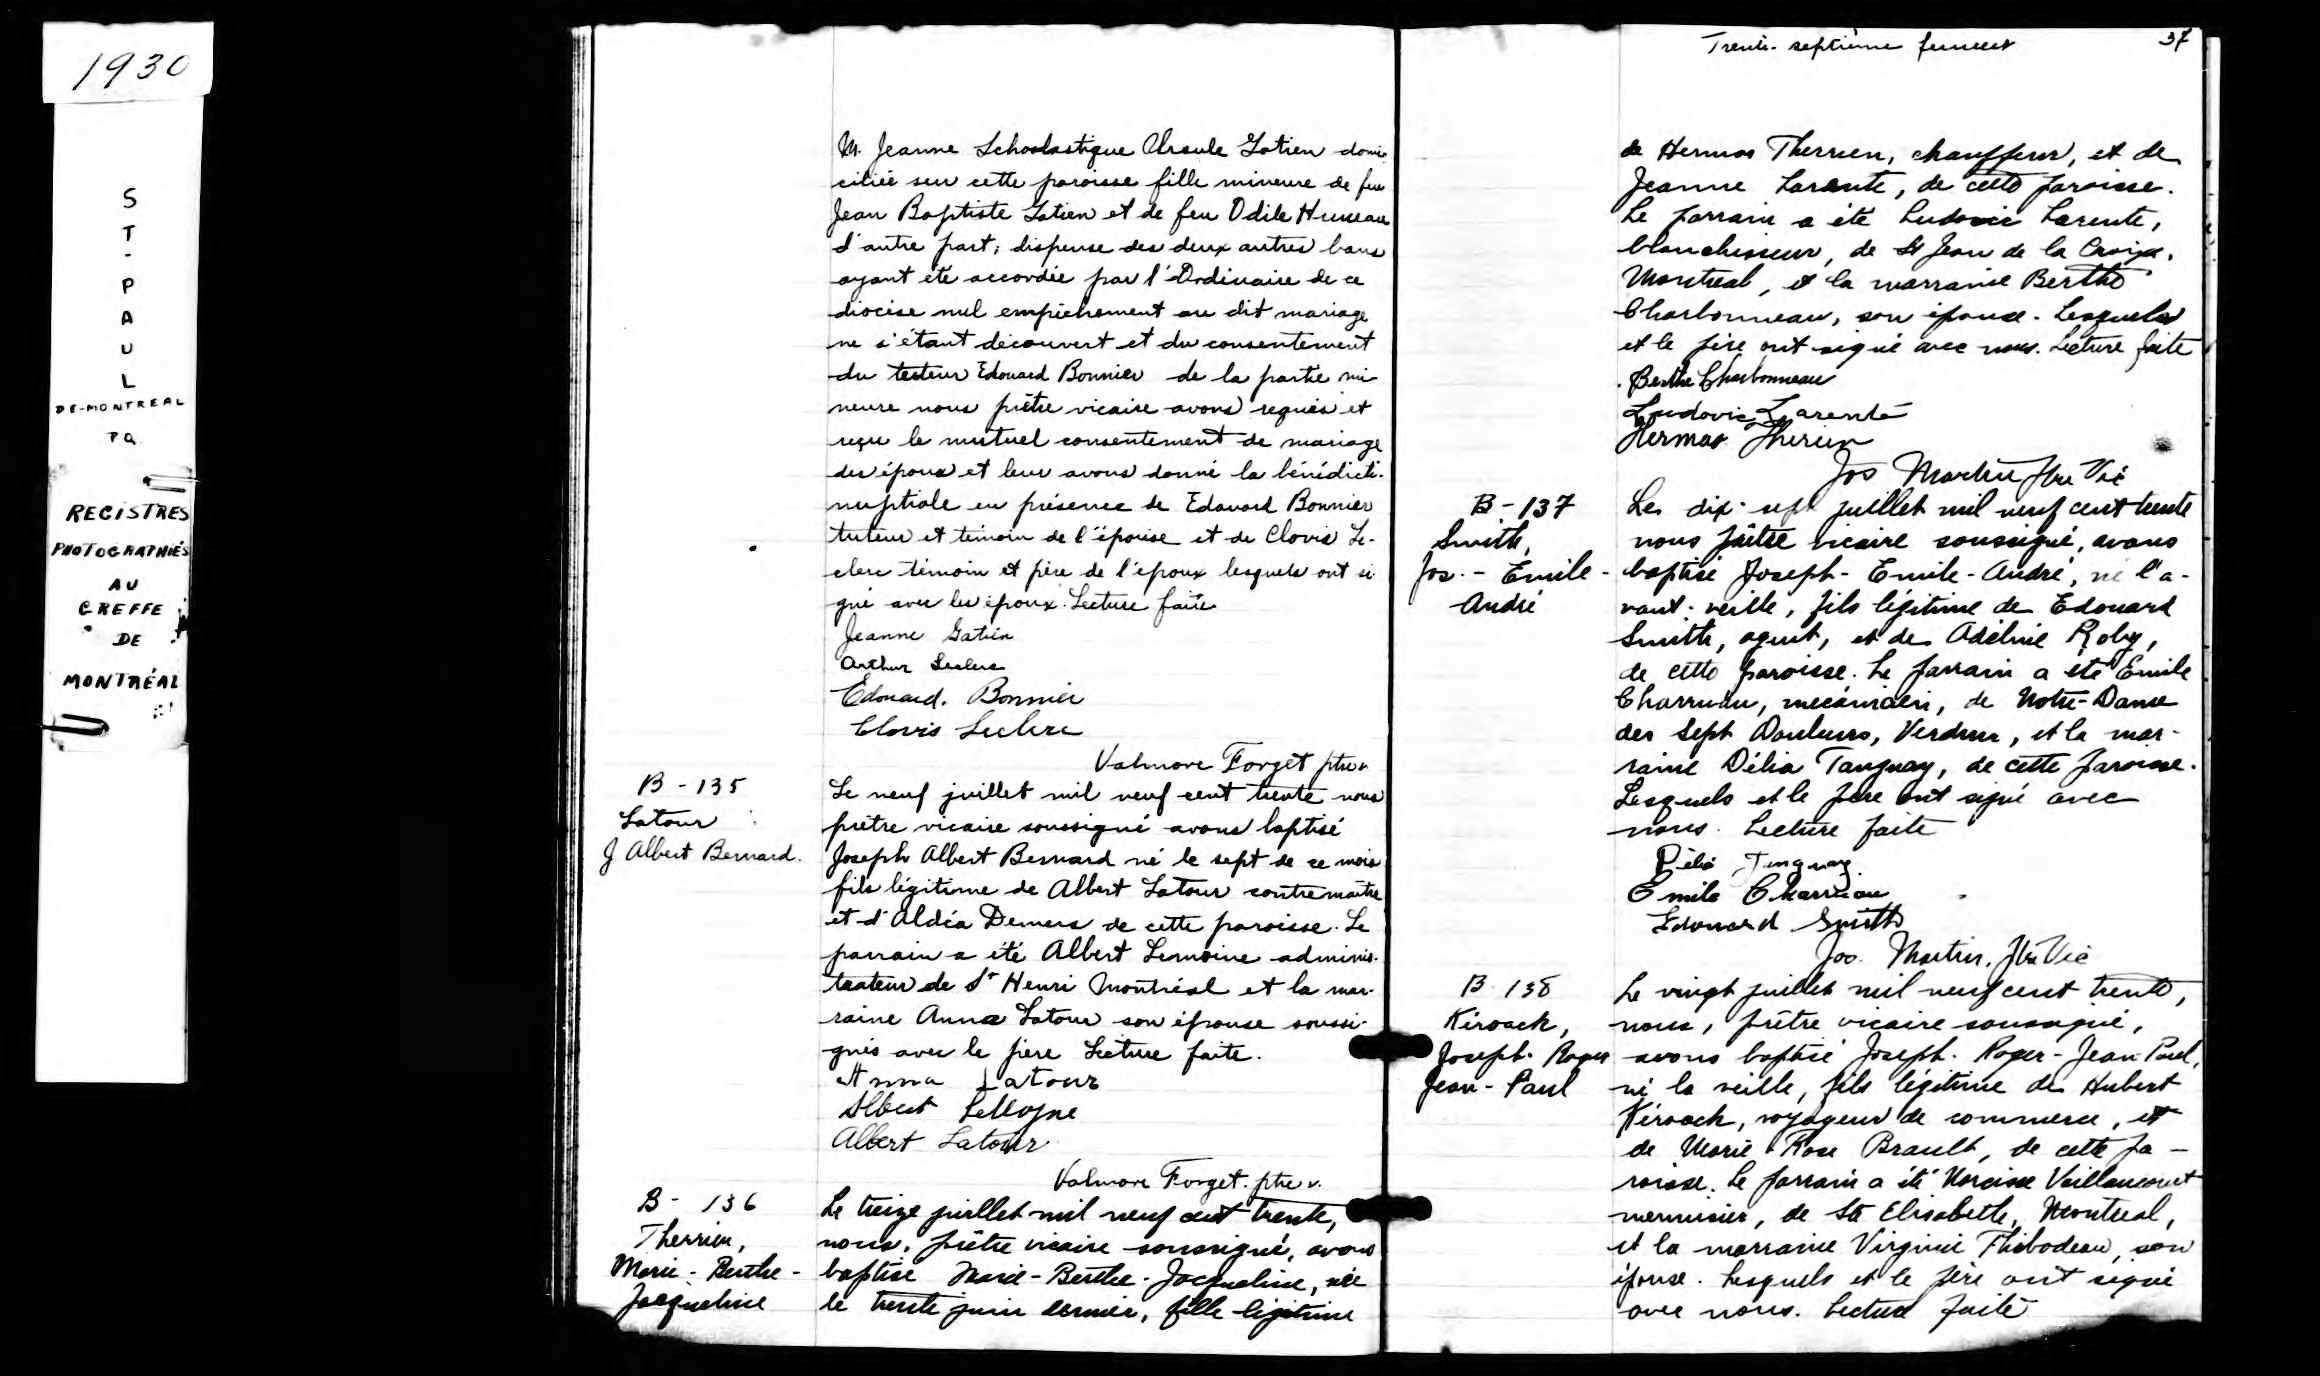 1930
S
T
-
P
A
U
L
DE-MONTREAL
P Q
REGISTRES
PHOTOGRAPHIÉS
AU
GREFFE
DE
MONTRÉAL
M. Jeanne Schoolastique Ursule Gatien domi-
ciliée sur cette paroisse fille mineure de feu
Jean Baptiste Gatien et de feu Odile Huneau
d'autre part; dispense des deux autres bans
ayant été accordée par l'Ordinaire de ce
diocèse nul empêchement au dit mariage
ne s'étant découvert et du consentement
du tuteur Edouard Bonnier de la partie mi
neure nous prêtre vicaire avons requis et
reçu le mutuel consentement de mariage
des époux et leur avons donné la bénédicti-
nuptiale en présence de Edouard Bonnier
tuteur et témoin de l'épouse et de Clovis Le-
clerc témoin et père de l'époux lesquels ont si
gné avec les époux. Lecture faite
Jeanne Gatien
Arthur Leclerc
Edouard. Bonnier
Clovis Leclerc
Valmore Forget ptre v.
B - 135
Latour
J Albert Bernard.
Le neuf juillet mil neuf cent trente nous
prêtre vicaire soussigné avons baptisé
Joseph Albert Bernard né le sept de ce mois
fils légitime de Albert Latour contremaître
et d'Aldéa Demers de cette paroisse. Le
parrain a été Albert Lemoine adminis-
trateur de St Henri Montréal et la mar-
raine Anna Latour son épouse soussi-
gnés avec le père Lecture faite.
Anna Latour
Albert
Albert Latour
Valmore Forget. ptre v.
B - 136
Therrien,
Marie - Berthe -
Jacqueline
Le treize juillet mil neuf cent trente,
nous, prêtre vicaire soussigné, avons
baptisé Marie-Berthe-Jacqueline, née
le trente juin dernier, fille légitime
Trente-septième feuillet 37
de Hermas Therrien, chauffeur, et de
Jeanne Larente, de cette paroisse.
Le parrain a été Ludovic Larente,
blanchisseur, de St Jean de la Croix,
Montreal, et la marraine Berthe
Charbonneau, son épouse. Lesquels
et le père ont signé avec nous. Lecture faite
Berthe Charbonneau
Ludovic Larente
Hermas Therien
Jos Martin Ptre Vic
B - 137
Smith,
Jos. - Emile -
André
Le dix-sept juillet mil neuf cent trente
nous prêtre vicaire soussigné, avons
baptisé Joseph-Emile-André, né l'a-
vant-veille, fils légitime de Edouard
Smith, agent, et de Adéline Roby,
de cette paroisse. Le parrain a été Emile
Charruau, mécanicien, de Notre-Dame
des Sept Douleurs, Verdun, et la mar-
raine Délia Tanguay, de cette paroisse.
Lesquels et le père ont signé avec
nous. Lecture faite
Délia Tanguay
Emile Charruau
Edouard Smith
Jos. Martin, Ptre Vic
B 138
Kéroack,
Joseph - Roger
Jean - Paul
Le vingt juillet mil neuf cent trente,
nous, prêtre vicaire soussigné,
avons baptisé Joseph-Roger-Jean-Paul,
né la veille, fils légitime de Hubert
Kéroack, voyageur de commerce, et
de Marie Rose Brault, de cette pa-
roisse. Le parrain a été Narcisse Vaillancourt
menuisier, de Ste Elisabeth, Montreal,
et la marraine Virginie Thibodeau, son
épouse. Lesquels et le père ont signé
avec nous. Lecture faite